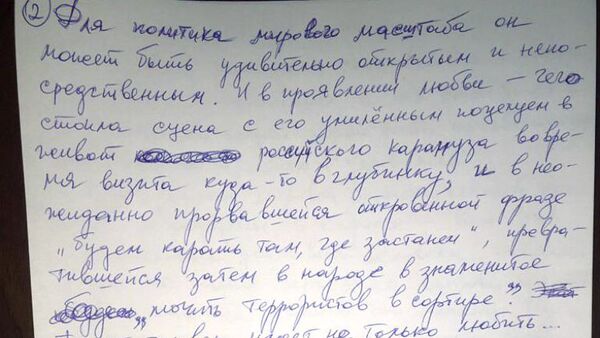 ② Для политика мирового масштаба он
может быть удивительно открытым и непо-
средственным. И в проявлении любви – чего
стоила сцена с его умилённым поцелуем в
живот российского карапуза во вре-
мя визита куда-то в глубинку, и в нео-
жиданно прорвавшейся откровенной фразе
„будем карать там, где застанем", превра-
тившейся затем в народе в знаменитое
„мочить террористов в сортире".
только любить...